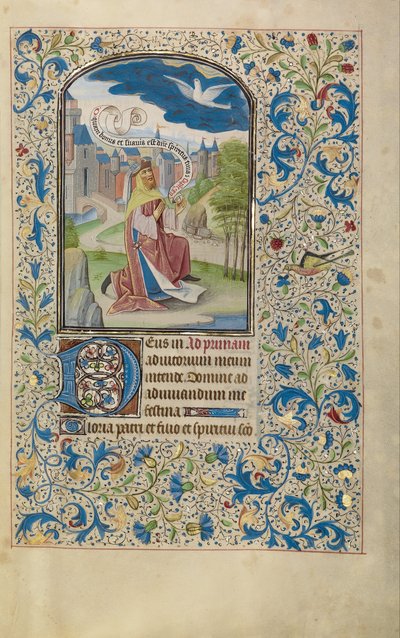 O quam bonus et suavis est dne spiritus tuus
Deus in Ad primam
adiutorium meum
intende. Domine ad
adiuuandum me
festina
Gloria patri et filio et spiritui sco